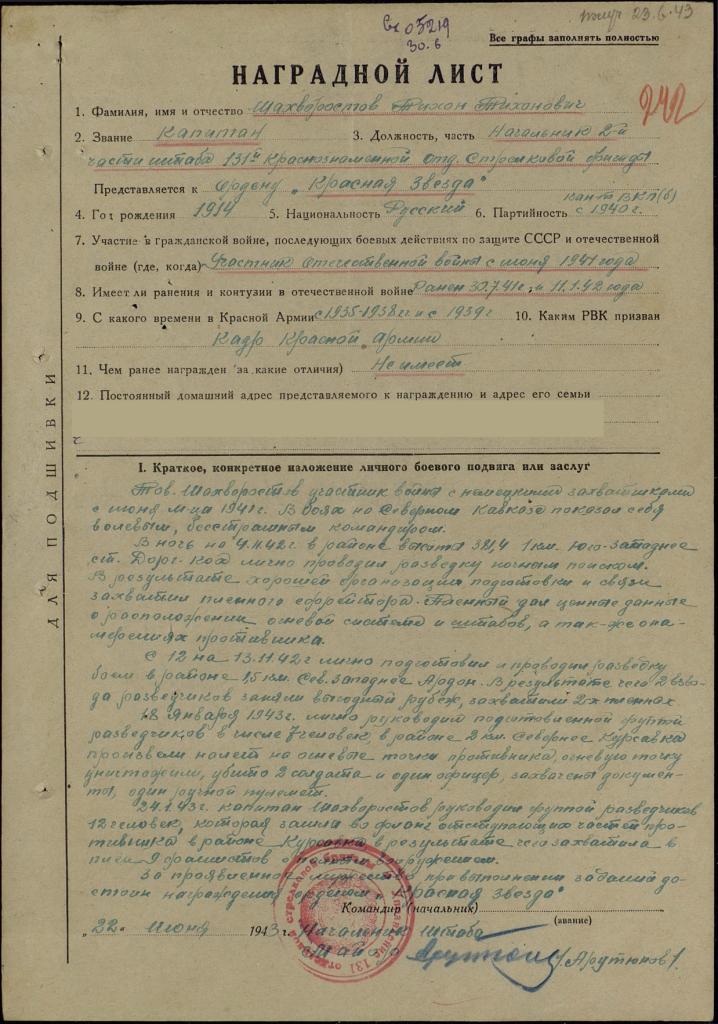 Вх 05219
30.6
получ 23.6.43
Все графы заполнять полностью
НАГРАДНОЙ ЛИСТ
242
1. Фамилия, имя и отчество Шахворостов Тихон Тихонович
2. Звание Капитан 3. Должность, часть Начальник 2-й
части штаба 131й Краснознаменной отд. Стрелковой бригады
Представляется к Ордену „Красная Звезда"
4. Год рождения 1914 5. Национальность Русский 6. Партийность канд ВКП(б) с 1940г.
7. Участие в гражданской войне, последующих боевых действиях по защите СССР и отечественной
войне (где, когда) Участник отечественной войны с июня 1941 года
8. Имеет ли ранения и контузии в отечественной войне Ранен 30.7.41г. и 11.1.42 года
9. С какого времени в Красной Армии с 1935-1938г и с 1939г 10. Каким РВК призван
Кадр Красной Армии
11. Чем ранее награжден (за какие отличия) Не имеет
12. Постоянный домашний адрес представляемого к награждению и адрес его семьи
г.
ДЛЯ ПОДШИВКИ
I. Краткое, конкретное изложение личного боевого подвига или заслуг
Тов. Шахворостов участник войны с немецкими захватчиками
с июня м-ца 1941г. В боях на Северном Кавказе показал себя
волевым, бесстрашным командиром.
В ночь на 4.11.42г в районе высоты 381,4 1 км. Юго-Западнее
ст. Дарг-Кох лично проводил разведку ночным поиском.
В результате хорошей организации подготовки и связи
захватил пленного ефрейтора. Пленный дал ценные данные
о расположении огневой системы и штабов, а так-же о на-
мерениях противника.
С 12 на 13.11.42г лично подготовил и проводил разведку
боем в районе 1,5 км. Сев. Западнее Ардон. В результате чего 2 взво-
да разведчиков заняли выгодный рубеж, захватили 2-х пленных
18 Января 1943г. лично руководил подготовленной группой
разведчиков в числе 7 человек, в районе 2 км. Севернее Курсавка
произвели налет на огневые точки противника, огневую точку
уничтожили, убито 2 солдата и один офицер, захвачены докумен-
ты, один ручной пулемет.
24.1.43г. капитан Шахворостов руководил группой разведчиков
12 человек, которая зашла во фланг отступающих частей про-
тивника в районе Курсавка в результате чего захватила в
плен 9 фашистов с полным вооружением.
За проявленное мужество при выполнении заданий до-
стоин награждения орденом „Красная Звезда"
Командир (начальник)
(звание)
„22" Июня 1943 г. Начальник Штаба
Майор /Арутюнов/.